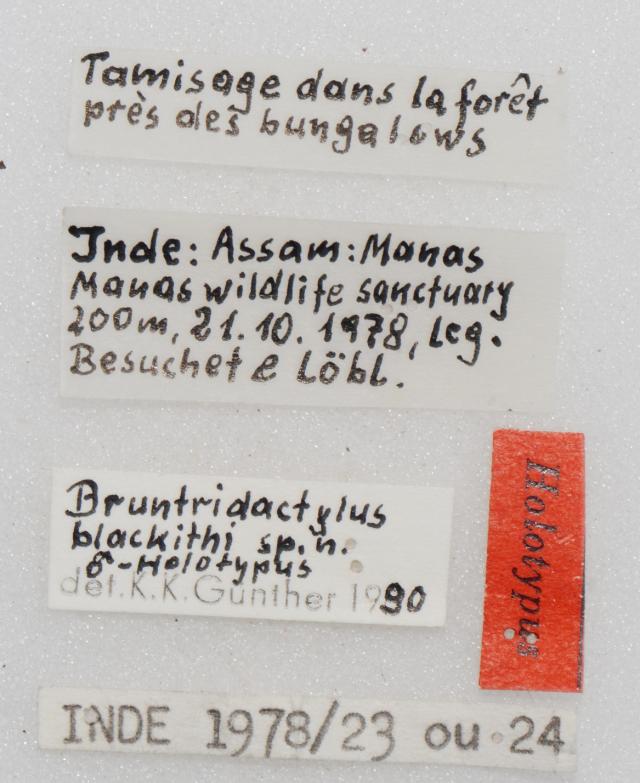 Tamisage dans la forêt
près des bungalows
Inde: Assam: Manas
Manas wildlife sanctuary
200m, 21. 10. 1978, leg.
Besuchet e Löbl.
Bruntridactylus
blackithi sp. n.
♂-Holotypus
det. K. K. Günther 1990
Holotypus
INDE 1978/23 ou 24